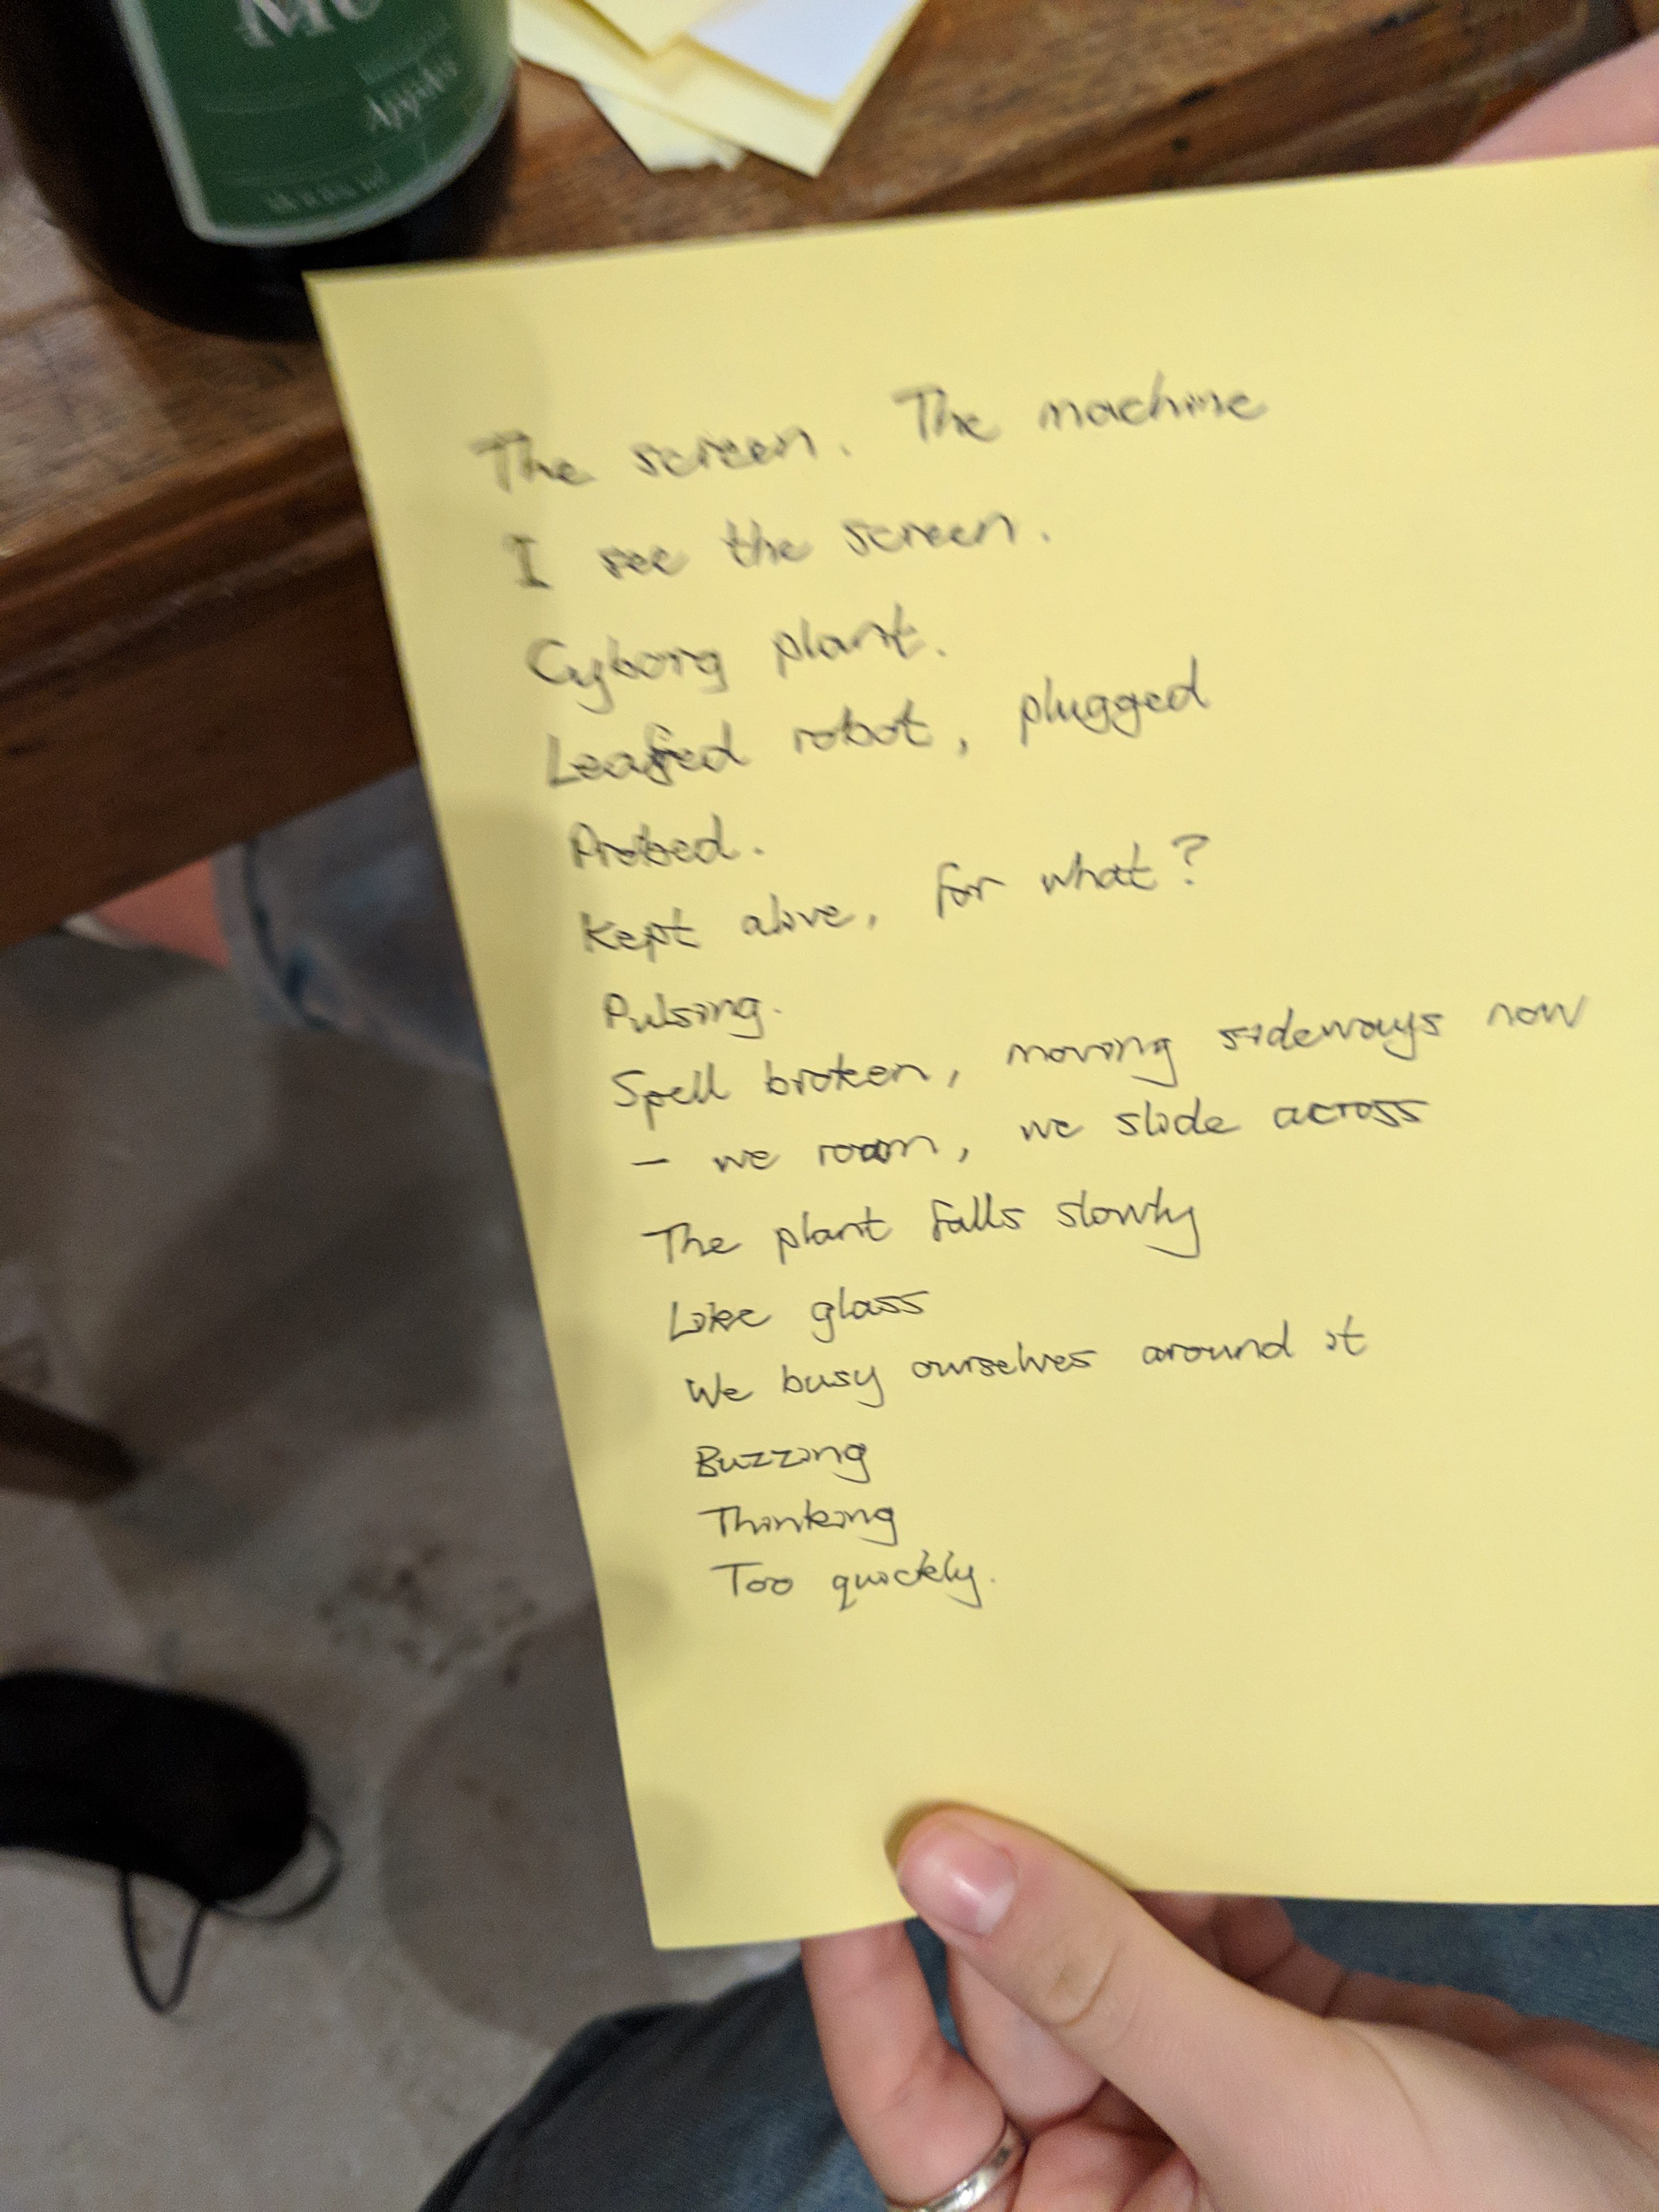 Mo
Apple
The screen. The machine
I see the screen.
Cyborg plant.
Leafed robot, plugged
Probed.
Kept alive, for what?
Pulsing.
Spell broken, moving sideways now
— we roam, we slide across
The plant falls slowly
Like glass
We busy ourselves around it
Buzzing
Thinking
Too quickly.